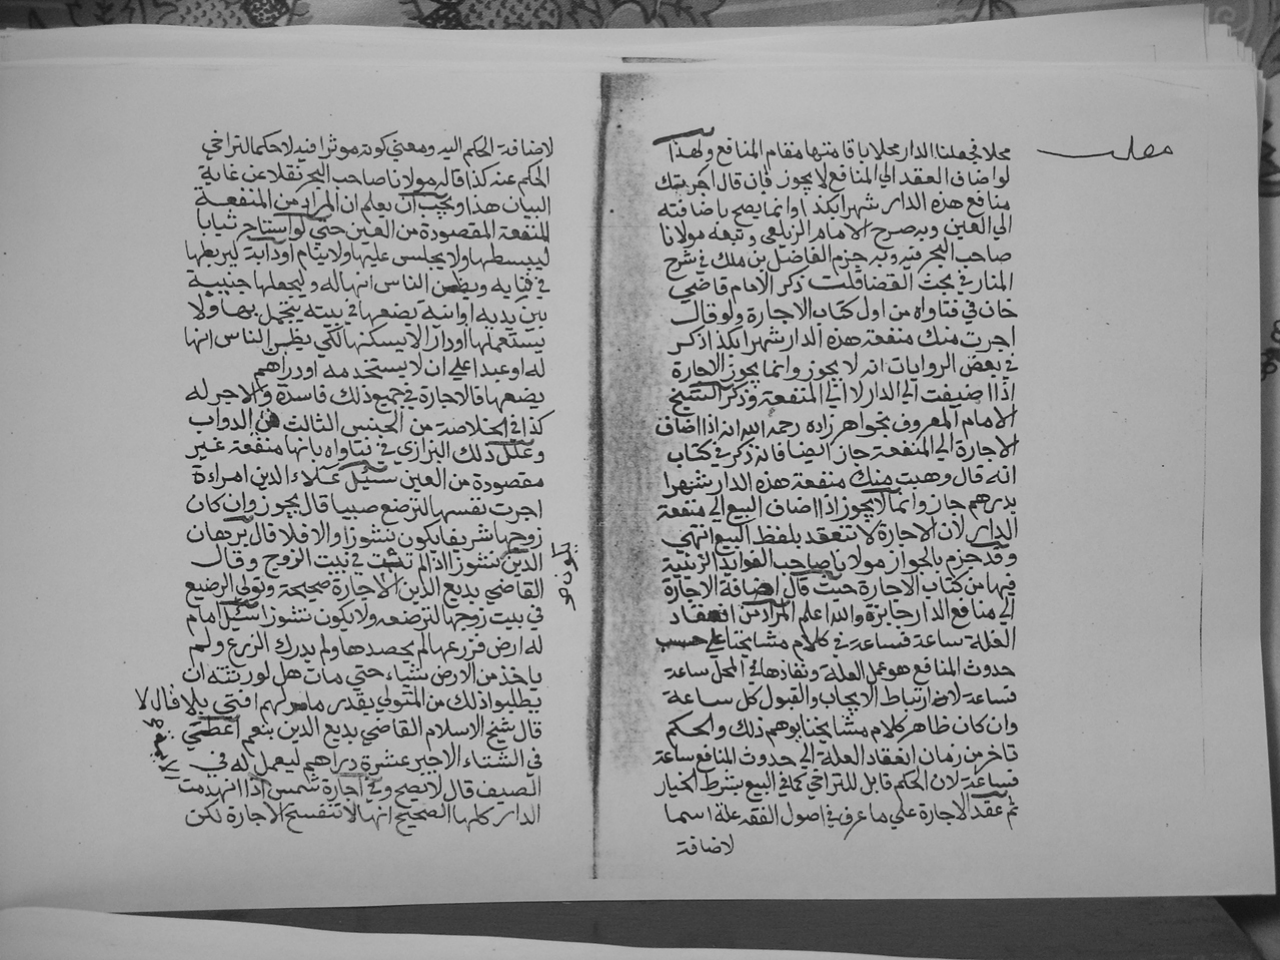 مطلب
محلا فجعلنا الدار محلا باقامتها مقام المنافع ولهذا
لو اضاف العقد الي المنافع لا يجوز فان قال اجرتك
منافع هذه الدار شهرا بكذا وانما يصح باضافته
الي العين وبه صرح الامام الزيلعي وتبعه مولانا
صاحب البحر فيه وبه جزم الفاضل بن ملك في شرح
المنار في بحث القضا قلت ذكر الامام قاضي
خان في فتاواه من اول كتاب الاجارة ولو قال
اجرت منك منفعة هذه الدار شهرا بكذا ذكر
في بعض الروايات انه لا يجوز وانما يجوز الاجارة
اذا اضيفت الي الدار لا الي المنفعة وذكر الشيخ
الامام المعروف بخواهر زاده رحمه الله انه اذا اضاف
الاجارة الي المنفعة جاز ايضا فانه ذكر في كتاب
انه قال وهبت منك منفعة هذه الدار شهرا
بدرهم جاز وانما لا يجوز اذا اضاف البيع الي منفعة
الدار لان الاجارة لا تنعقد بلفظ البيع انتهي
وقد جزم بالجواز مولانا صاحب الفوايد الزينية
فيها من كتاب الاجارة حيث قال اضافة الاجارة
الي منافع الدار جايزة والله اعلم المراد من انعقاد
العلة ساعة فساعة في كلام مشايخنا علي حسب
حدوث المنافع هو عمل العلة ونفاذها في المحل ساعة
فساعة لا ارتباط الايجاب والقبول كل ساعة
وان كان ظاهر كلام مشايخنا يوهم ذلك والحكم
تاخر من زمان انعقاد العلة الي حدوث المنافع ساعة
فساعة لان الحكم قابل للتراخي كما في البيع بشرط الخيار
ثم عقد الاجارة علي ما عرف في اصول الفقه علة اسما
لاضافة
لاضافة الحكم اليه ومعني كونه موثرا فيه لا حكما لتراخي
الحكم عنه كذا قاله مولانا صاحب البحر نقلا عن غاية
البيان هذا ويجب ان يعلم ان المراد من المنفعة
المنفعة المقصودة من العين حتي لو استاجر ثيابا
ليبسطها ولا يجلس عليها ولا ينام او دابة ليربطها
في فنايه ويظن الناس انها له وليجعلها جنيبة
بين يديه او انية يضعها في بيته يتجمل بها ولا
يستعملها او دارا لا يسكنها لكي يظن الناس انها
له او عبدا علي ان لا يستخدمه او دراهم
يضعها فالاجارة في جميع ذلك فاسدة ولا اجر له
كذا في الخلاصة من الجنس الثالث في الدواب
وعلل ذلك البزازي في فتاواه بانها منفعة غير
مقصودة من العين سيل علاء الدين امراءة
اجرت نفسها لترضع صبيا قال يجوز وان كان
زوجها شريفا يكون نشوزا والا فلا قال برهان
الدين نشوزا اذا لم تثبت في بيت الزوج وقال
القاضي بديع الدين الاجارة صحيحة وتولي الرضيع
في بيت زوجها لترضعه ولا يكون نشوزا سيل امام
له ارض فزرعها لم يحصدها ولم يدرك الزرع ولم
ياخذ من الارض شياء حتي مات هل لورثته ان
يطلبوا ذلك من المتولي بقدر ما لهم افتي بلا قال لا
قال شيخ الاسلام القاضي بديع الدين بنعم اعطي
في الشتاء الاجير عشرة دراهم ليعمل له في
الصيف قال لا يصح وفي اجارة شمس اذا انهدمت
الدار كلها الصحيح انها لا تنفسخ الاجارة لكن